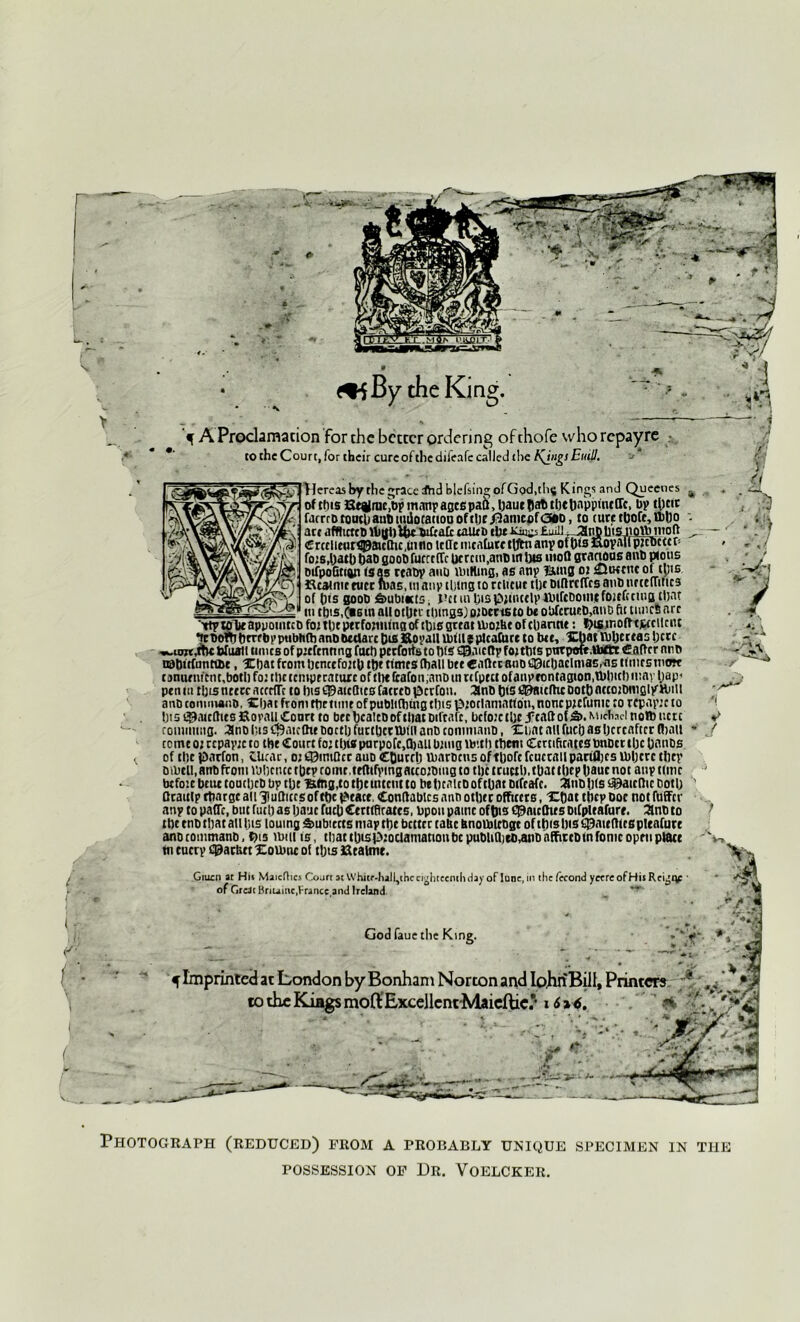 DIEV ET MON DROIT
By the King.
¶ A Proclamation for the better ordering of those who repayre
to the Court, for their cure of the disease called the Kings Euill.
WHereas by the grace and blessing of God, the Kings and Queenes
of this Realme, by many ages past, haue had the happinesse, by their
sacred touch and inuocation of the Name of God, to cure those, who
are afflicted with the disease called the Kings Euill: And his now most
Excellent Maiestie, in no lesse measure then any of his Royall predeces-
sors, hath had good successe herein, and in his most gracious and pious
disposition is as ready and willing, as any King or Queene of this
Realme euer was, in any thing to relieue the distresses and necessities
of his good Subiects, Yet in his princely wisedome foreseeing that
in this, (as in all other things) order is to be obserued, and fit times are
necessary to be appointed for the performing of this great worke of charitie: His most Excellent
Maiestie doth hereby publish and declare his Royall will & pleasure to bee, That whereas here-
tofore, the vsuall times of presenting such persons to his Maiesty for this purpose, were Easter and
Whitsontide, That from hencefoorth the times shall bee Easter and Michaelmas, as times more
conuenient, both for the temperature of the season, and in respect of any contagion, which may hap-
pen in this neere accesse to his Maiesties sacred person. And his Maiestie doth accordingly will
and command, That from the time of publishing this Proclamation, none presume to repayre to
his Maiesties Royall Court to bee healed of that disease, before the Feast of S. Michael now next
comming. And his Maiestie doeth further will and command, That all such as hereafter shall
come or repayre to the Court for this purpose, shall bring with them Certificates vnder the hands
of the Parson, Vicar, or Minister and Church wardens of those seuerall parishes where they
dwell, and from whence they come, testifying according to the trueth, that they haue not any time
before beue touched by the King, to the intent to be healed of that disease. And his Maiestie doth
straitly charge all Iustices of the Peace, Constables and other officers, That they doe not suffer
any to passe, but such as haue such Certificates, vpon paine of his Maiesties displeasure. And to
the end that all his louing Subiects may the better take knowledge of this his Maiesties pleasure
and command, His will is, that this Proclamation be published, and affixed in some open place
in euery Market Towne of this Realme.
Giuen at His Maiesties Court at White-hall, the eighteenth day of Iune, in the second yeere of His Reigne
of Great Britaine, France, and Ireland.
God saue the King.
¶ Imprinted at London by Bonham Norton and Iohn Bill, Printers
to the Kings most Excellent Maiestie. 1626.
PHOTOGRAPH (REDUCED) FROM A PROBABLY UNIQUE SPECIMEN IN THE
POSSESSION OF DR. VOELCKER.